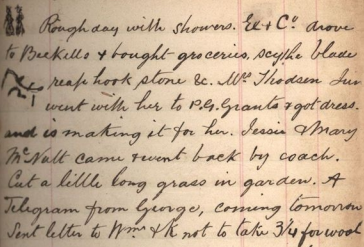 Rough day with showers. Ex & Co. drove
to Beckells & bought groceries, scythe blade
& reap hook stone &c. Mrs Thodsen Jun
went with her to P.G. Grants & got dress
and is making it for her. Jessie & Mary
McNutt came & went back by coach.
Cut a little long grass in garden. A
Telegram from George, coming tomorrow
Sent letter to Wms & K not to take 3¼ for wool